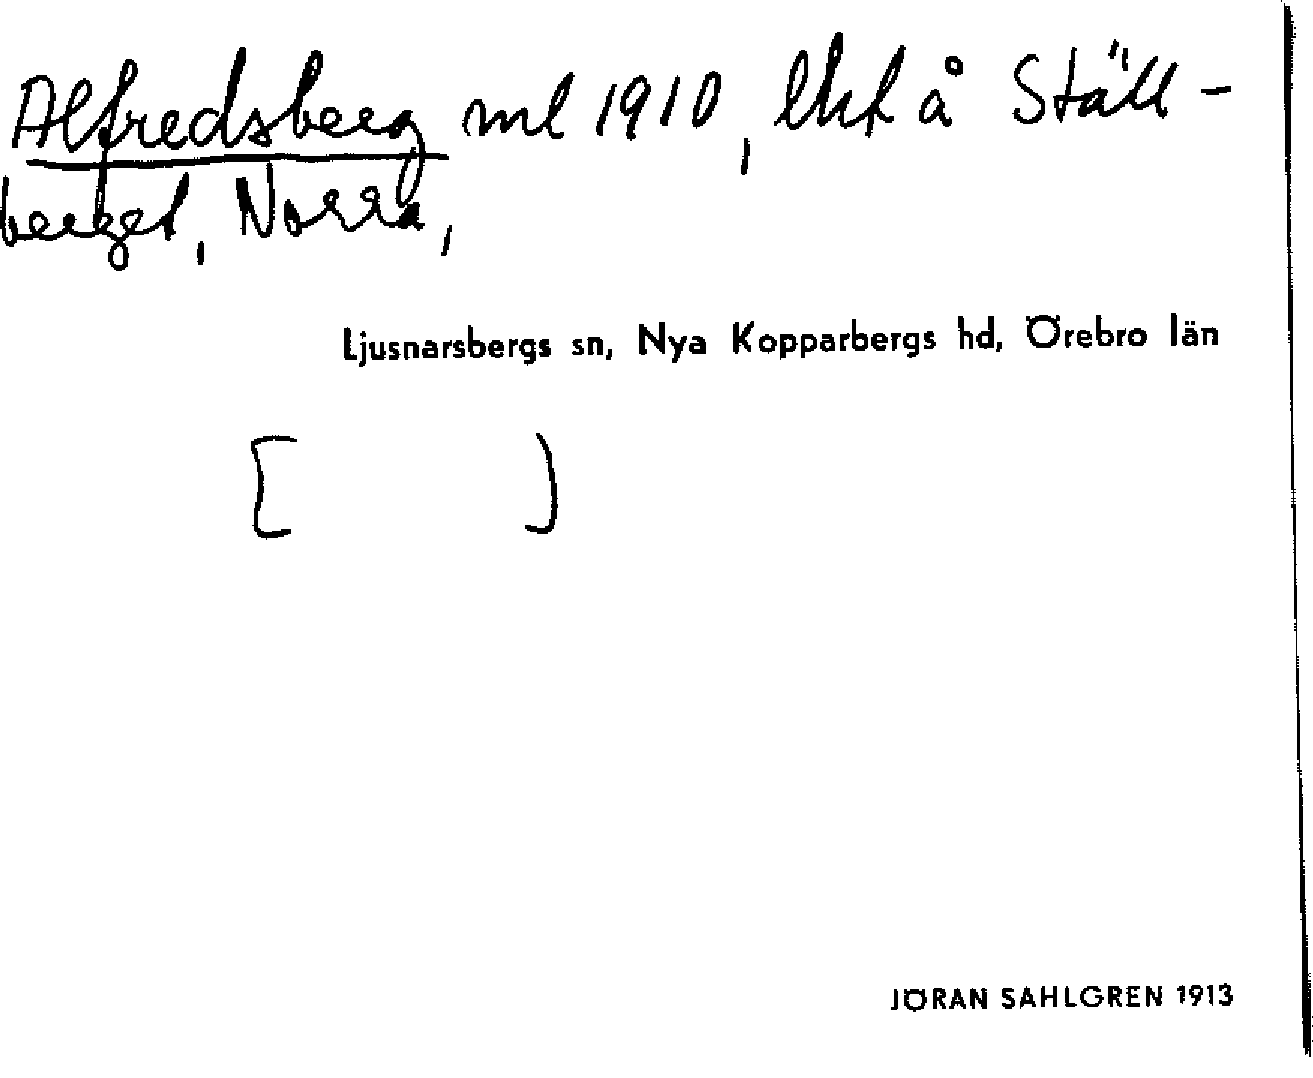 Alfredsberg ml 1910, lht å Ställ-
berget, Norra,
Ljusnarsbergs sn, Nya Kopparbergs hd, Örebro län
[ ]
JÖRAN SAHLGREN 1913